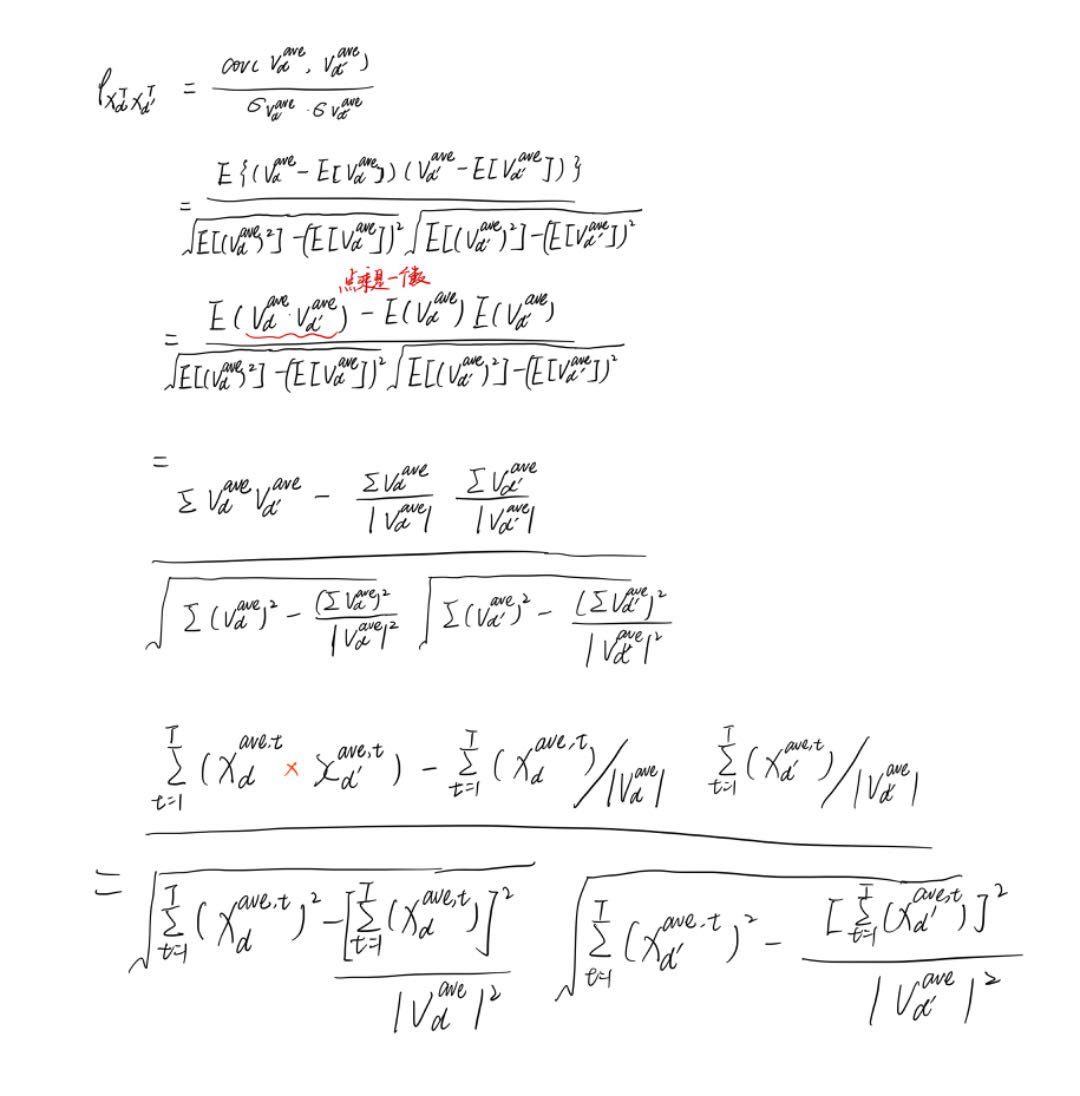 ρ_{X_d^T X_{d'}^T} = \frac{cov(V_d^{ave}, V_{d'}^{ave})}{σ_{V_d^{ave}} · σ_{V_{d'}^{ave}}}
= \frac{E\{(V_d^{ave} - E[V_d^{ave}])(V_{d'}^{ave} - E[V_{d'}^{ave}])\}}{\sqrt{E[(V_d^{ave})^2] - (E[V_d^{ave}])^2} \sqrt{E[(V_{d'}^{ave})^2] - (E[V_{d'}^{ave}])^2}}
点乘是一个数
= \frac{E(V_d^{ave} · V_{d'}^{ave}) - E(V_d^{ave}) E(V_{d'}^{ave})}{\sqrt{E[(V_d^{ave})^2] - (E[V_d^{ave}])^2} \sqrt{E[(V_{d'}^{ave})^2] - (E[V_{d'}^{ave}])^2}}
= \frac{Σ V_d^{ave} V_{d'}^{ave} - \frac{Σ V_d^{ave}}{|V_d^{ave}|} \frac{Σ V_{d'}^{ave}}{|V_{d'}^{ave}|}}{\sqrt{Σ (V_d^{ave})^2 - \frac{(Σ V_d^{ave})^2}{|V_d^{ave}|^2}} \sqrt{Σ (V_{d'}^{ave})^2 - \frac{(Σ V_{d'}^{ave})^2}{|V_{d'}^{ave}|^2}}}
= \frac{\sum_{t=1}^{T} (X_d^{ave,t} × X_{d'}^{ave,t}) - \sum_{t=1}^{T} (X_d^{ave,t}) / |V_d^{ave}| \sum_{t=1}^{T} (X_{d'}^{ave,t}) / |V_{d'}^{ave}|}{\sqrt{\sum_{t=1}^{T} (X_d^{ave,t})^2 - \frac{[\sum_{t=1}^{T} (X_d^{ave,t})]^2}{|V_d^{ave}|^2}} \sqrt{\sum_{t=1}^{T} (X_{d'}^{ave,t})^2 - \frac{[\sum_{t=1}^{T} (X_{d'}^{ave,t})]^2}{|V_{d'}^{ave}|^2}}}